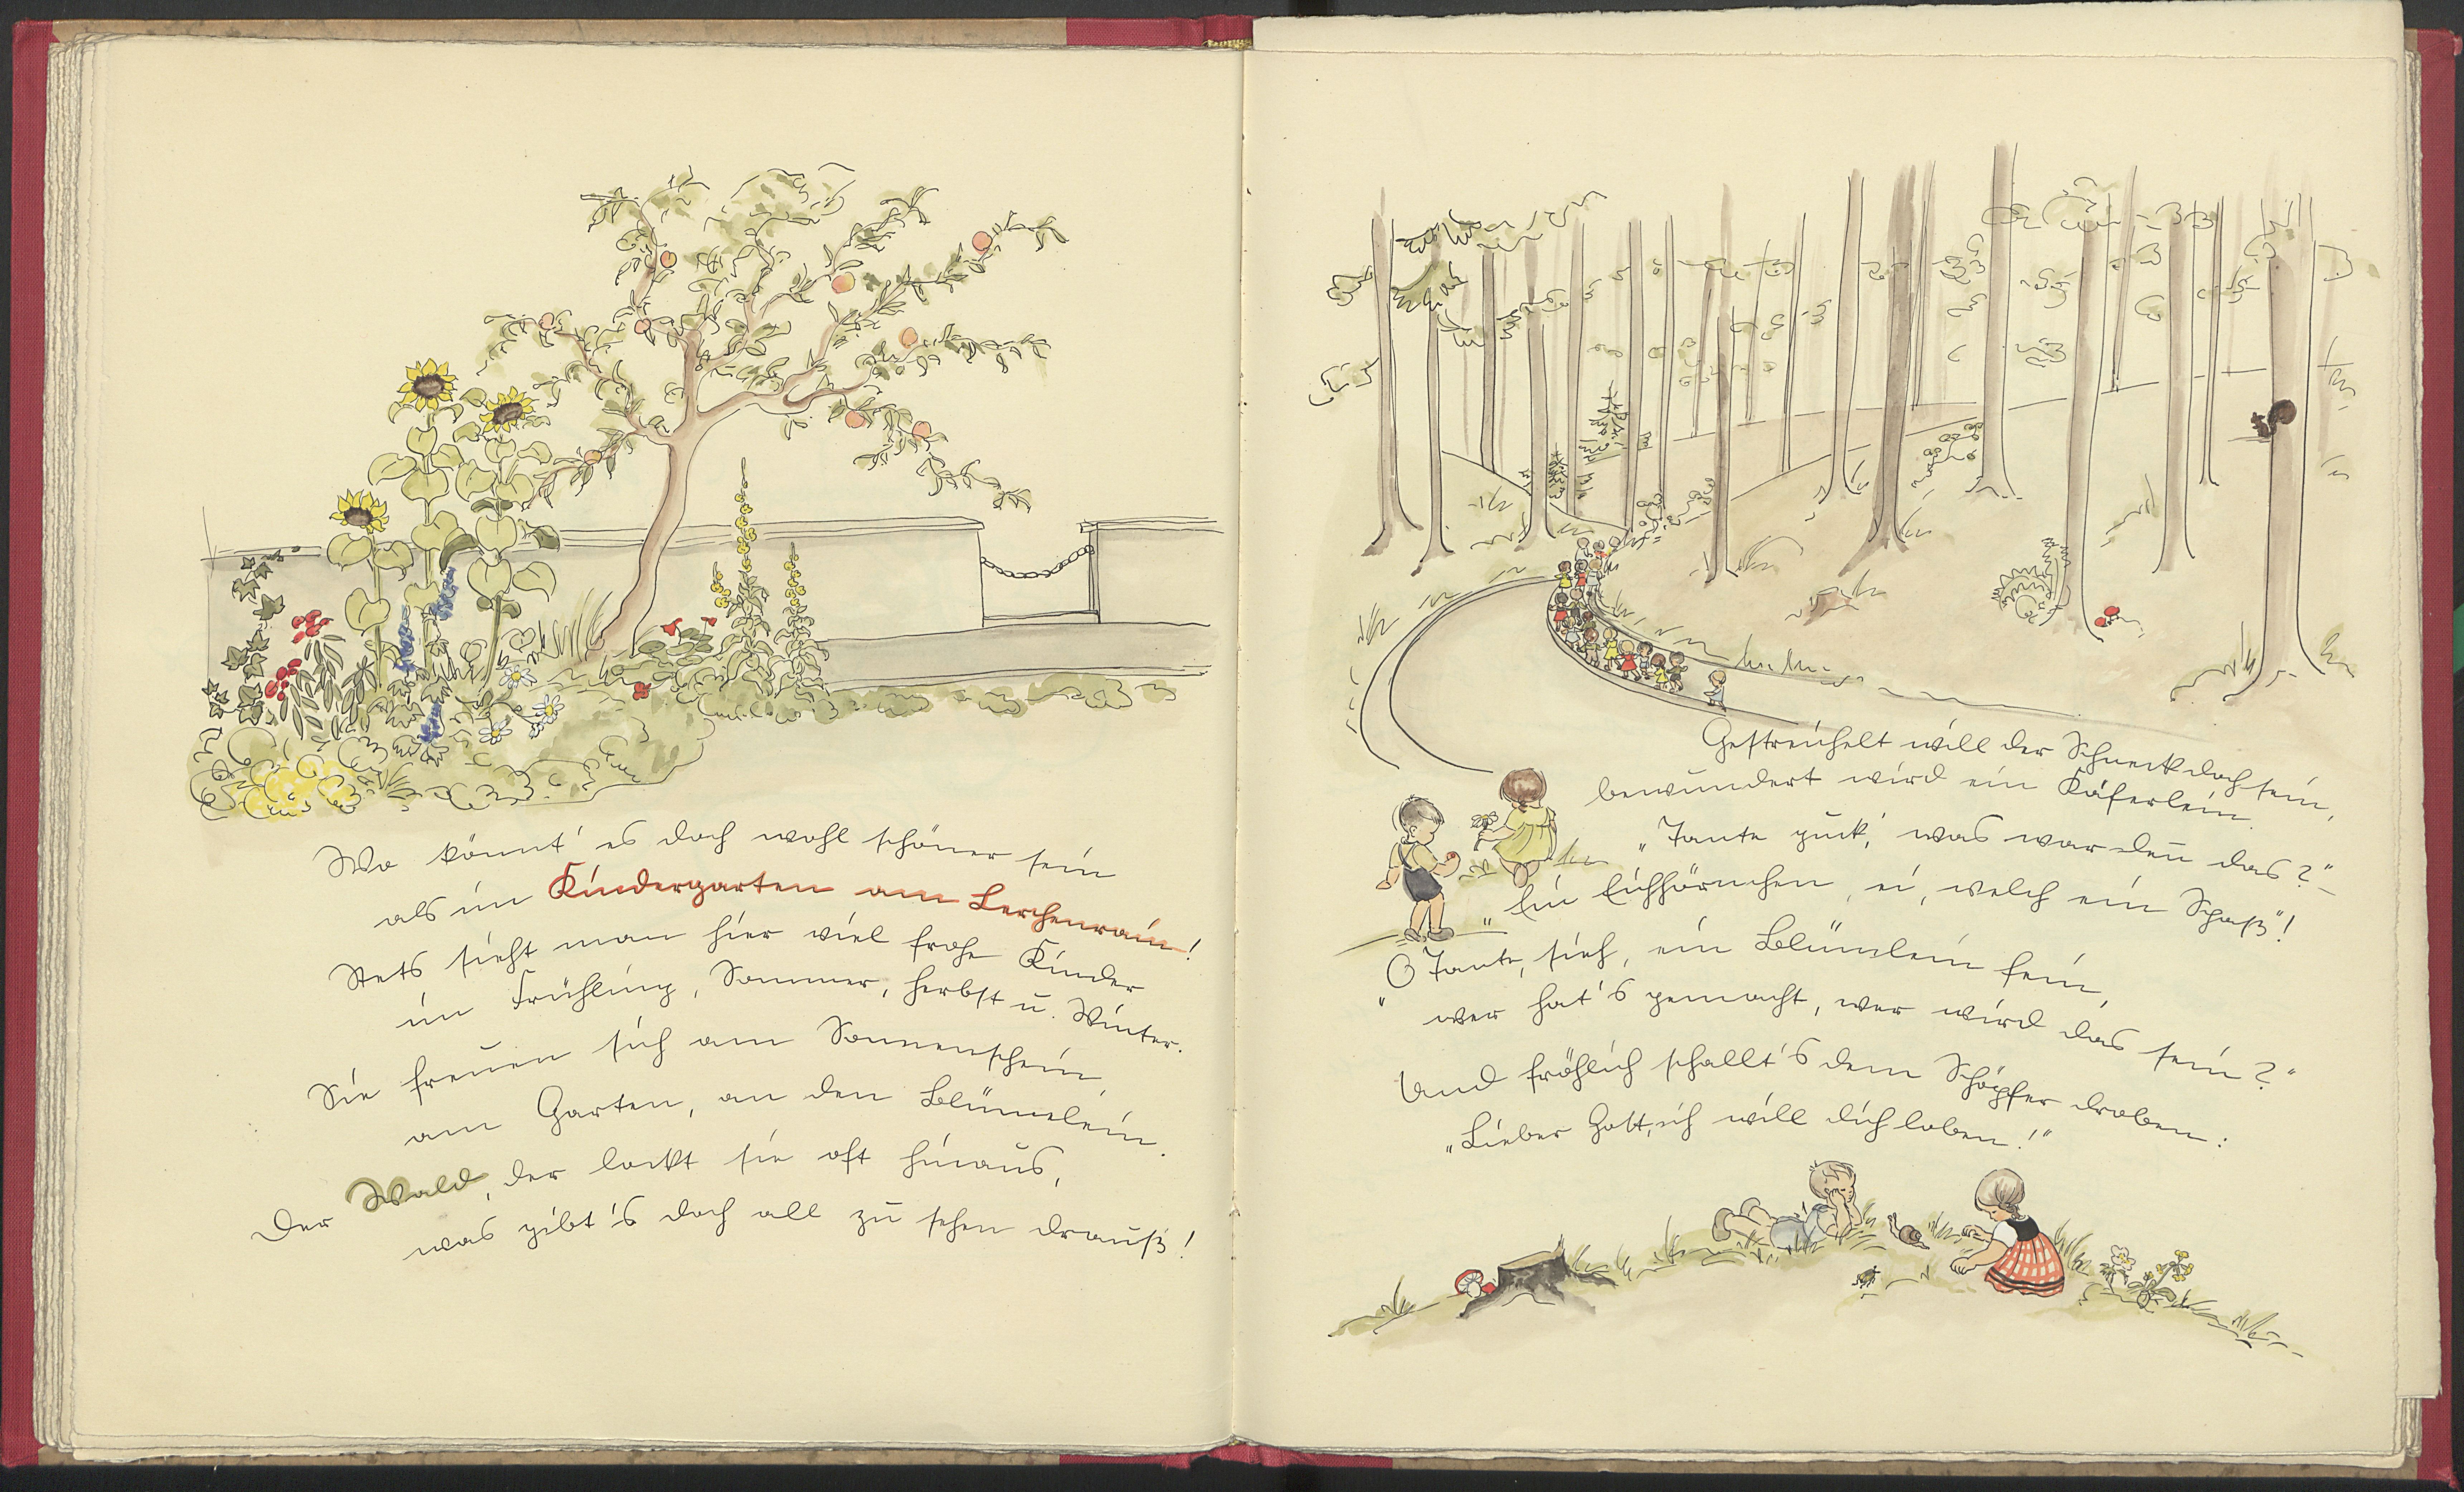 Wo könnt' es doch wohl schöner sein
als im Kindergarten am Lerchenrain!
Stets sieht man hier viel frohe Kinder
im Frühling, Sommer, Herbst u. Winter.
Sie freuen sich am Sonnenschein,
am Garten, an den Blümelein.
Der Wald, der lockt sie oft hinaus,
was gibt's doch all zu sehen drauß!
Gestreichelt will der Schneck doch sein,
bewundert wird ein Käferlein.
„Tante guck', was war den das?"–
„Ein Eichhörnchen, ei, welch ein Spaß"!
„O Tante, sieh, ein Blümlein fein,
wer hat's gemacht, wer wird das sein?"
Und fröhlich schallt's dem Schöpfer droben:
„Lieber Gott, ich will dich loben!"